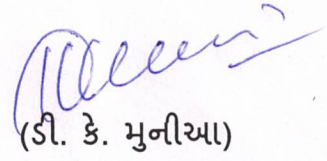 (ડી. કે. મુનીઆ)